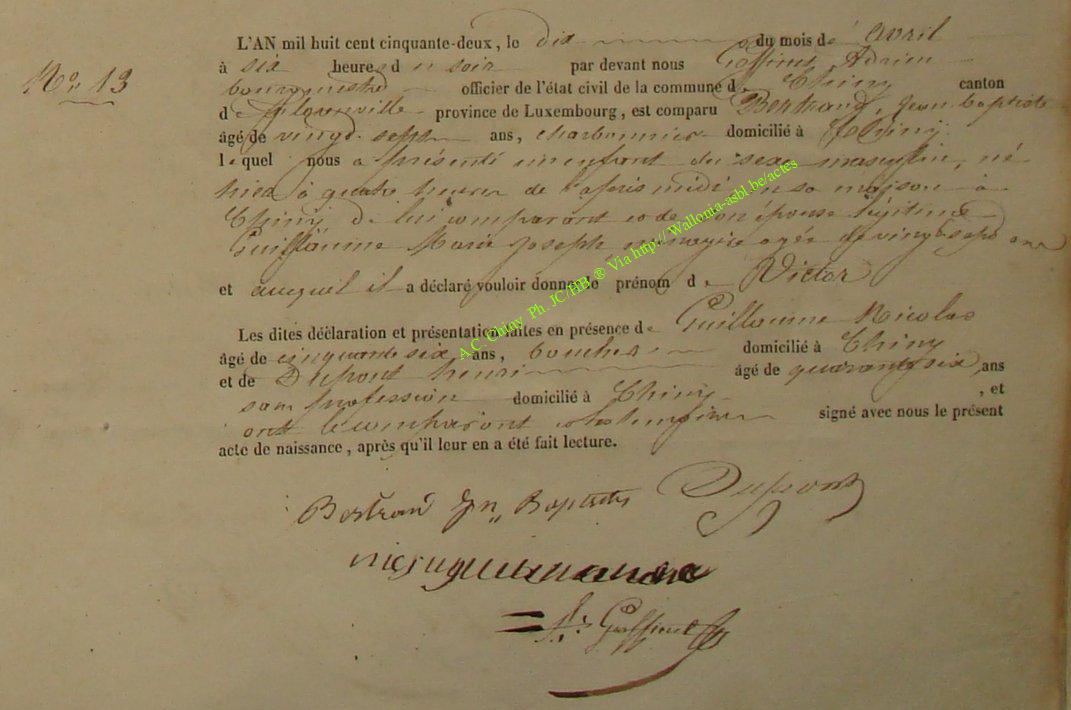 No. 13
L'AN mil huit cent cinquante-deux, le dix du mois d'avril
à six heures du soir par devant nous Goffinet Adrien
bourgmestre officier de l'état civil de la commune de Chiny canton
de Florenville province de Luxembourg, est comparu Bertrand, Jean Baptiste
âgé de vingt sept ans, charbonnier domicilié à Chiny
lequel nous a présenté un enfant du sexe masculin, né
hier à quatre heures de l'après midi en sa maison à
Chiny de lui comparant et de son épouse légitime
Guillaume Marie Joseph ménagère agée de vingt sept ans
et auquel il a déclaré vouloir donner le prénom de Victor
Les dites déclaration et présentation faites en présence de Guillaume Nicolas
âgé de cinquante six ans, domicilié à Chiny
et de Dupont henri âgé de quarante six ans
sans profession domicilié à Chiny, et
ont le comparant et les témoins signé avec nous le présent
acte de naissance, après qu'il leur en a été fait lecture.
Bertrand Jn Baptiste Dupont
Goffinet
A.C. Chiny Ph. JC/HB ® Via http://Wallonia-asbl.be/actes